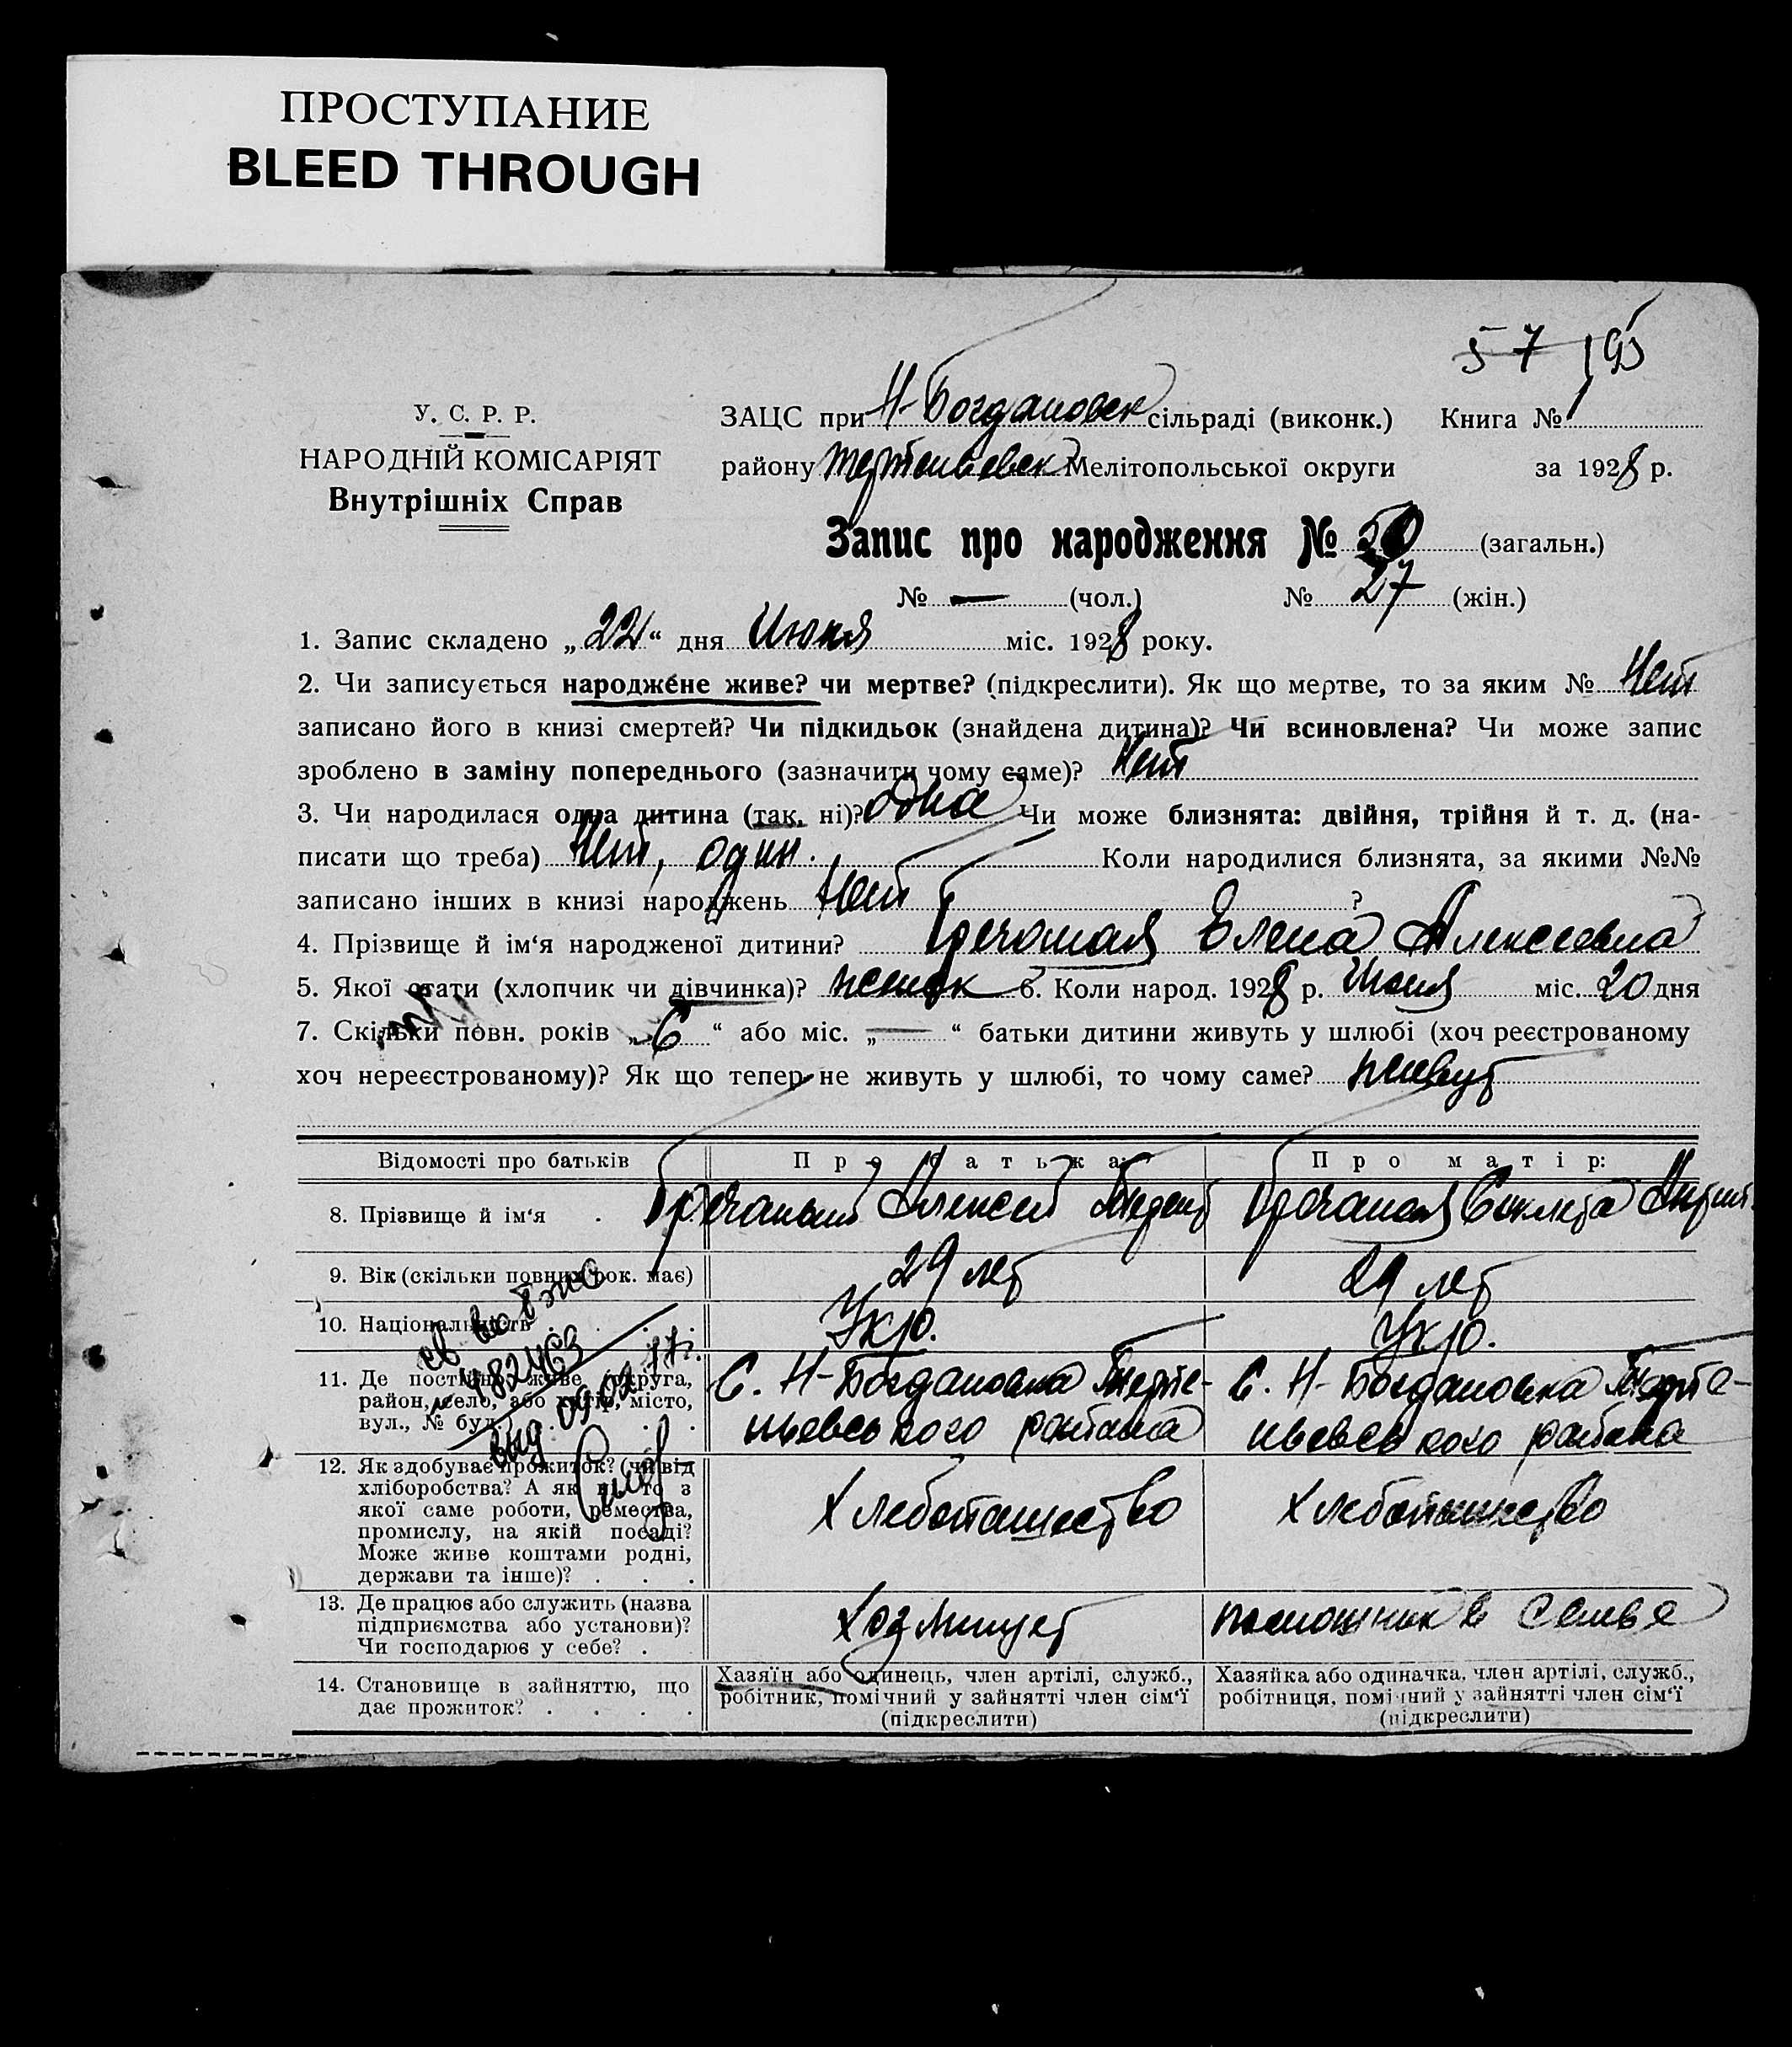 ПРОСТУПАНИЕ
BLEED THROUGH
57 195
У. С. Р. Р.
НАРОДНІЙ КОМІСАРІЯТ
Внутрішніх Справ
ЗАЦС при Н-Богдановск сільраді (виконк.) Книга № 1
району Терпеньевск Мелітопольської округи за 1928 р.
Запис про народження № 50 (загальн.)
№ — (чол.) № 27 (жін.)
1. Запис складено „22“ дня Июня міс. 1928 року.
2. Чи записується народжене живе? чи мертве? (підкреслити). Як що мертве, то за яким № Нет
записано його в книзі смертей? Чи підкидьок (знайдена дитина)? Чи всиновлена? Чи може запис
зроблено в заміну попереднього (зазначити чому саме)? Нет
3. Чи народилася одна дитина (так, ні)? одна Чи може близнята: двійня, трійня й т. д. (на-
писати що треба) Нет, один. Коли народилися близнята, за якими №№
записано інших в книзі народжень Нет ?
4. Прізвище й ім‘я народженої дитини? Гречаная Елена Алексеевна
5. Якої стати (хлопчик чи дівчинка)? женск 6. Коли народ. 1928 р. Июня міс. 20 дня
7. Скільки повн. років „6“ або міс. „—“ батьки дитини живуть у шлюбі (хоч реєстрованому
хоч нереєстрованому)? Як що тепер не живуть у шлюбі, то чому саме? живут
Відомості про батьків Про батька: Про матір:
8. Прізвище й ім‘я . Гречаный Алексей Гречаная
9. Вік (скільки повних рок. має) 29 лет 29 лет
10. Національність . . . . Укр. Укр.
11. Де постійно живе (округа,
район, село, або хутір, місто,
вул., № буд.) . . . .
С. Н-Богдановка Терпе-
ньевського района
С. Н-Богдановка Терпе-
ньевського района
12. Як здобуває прожиток? (чи від
хліборобства? А як ні, то з
якої саме роботи, ремества,
промислу, на якій посаді?
Може живе коштами родні,
держави та інше)? . . .
Хлебопашество
Хлебопашество
13. Де працює або служить (назва
підприємства або установи)?
Чи господарює у себе? .
помошник в семье
14. Становище в зайняттю, що
дає прожиток? . . . .
Хазяїн або одинець, член артілі, служб.,
робітник, помічний у зайнятті член сім‘ї
(підкреслити)
Хазяйка або одиначка, член артілі, служб.,
робітниця, помічний у зайнятті член сім‘ї
(підкреслити)
№ 482463
выд. 09.02.77г.